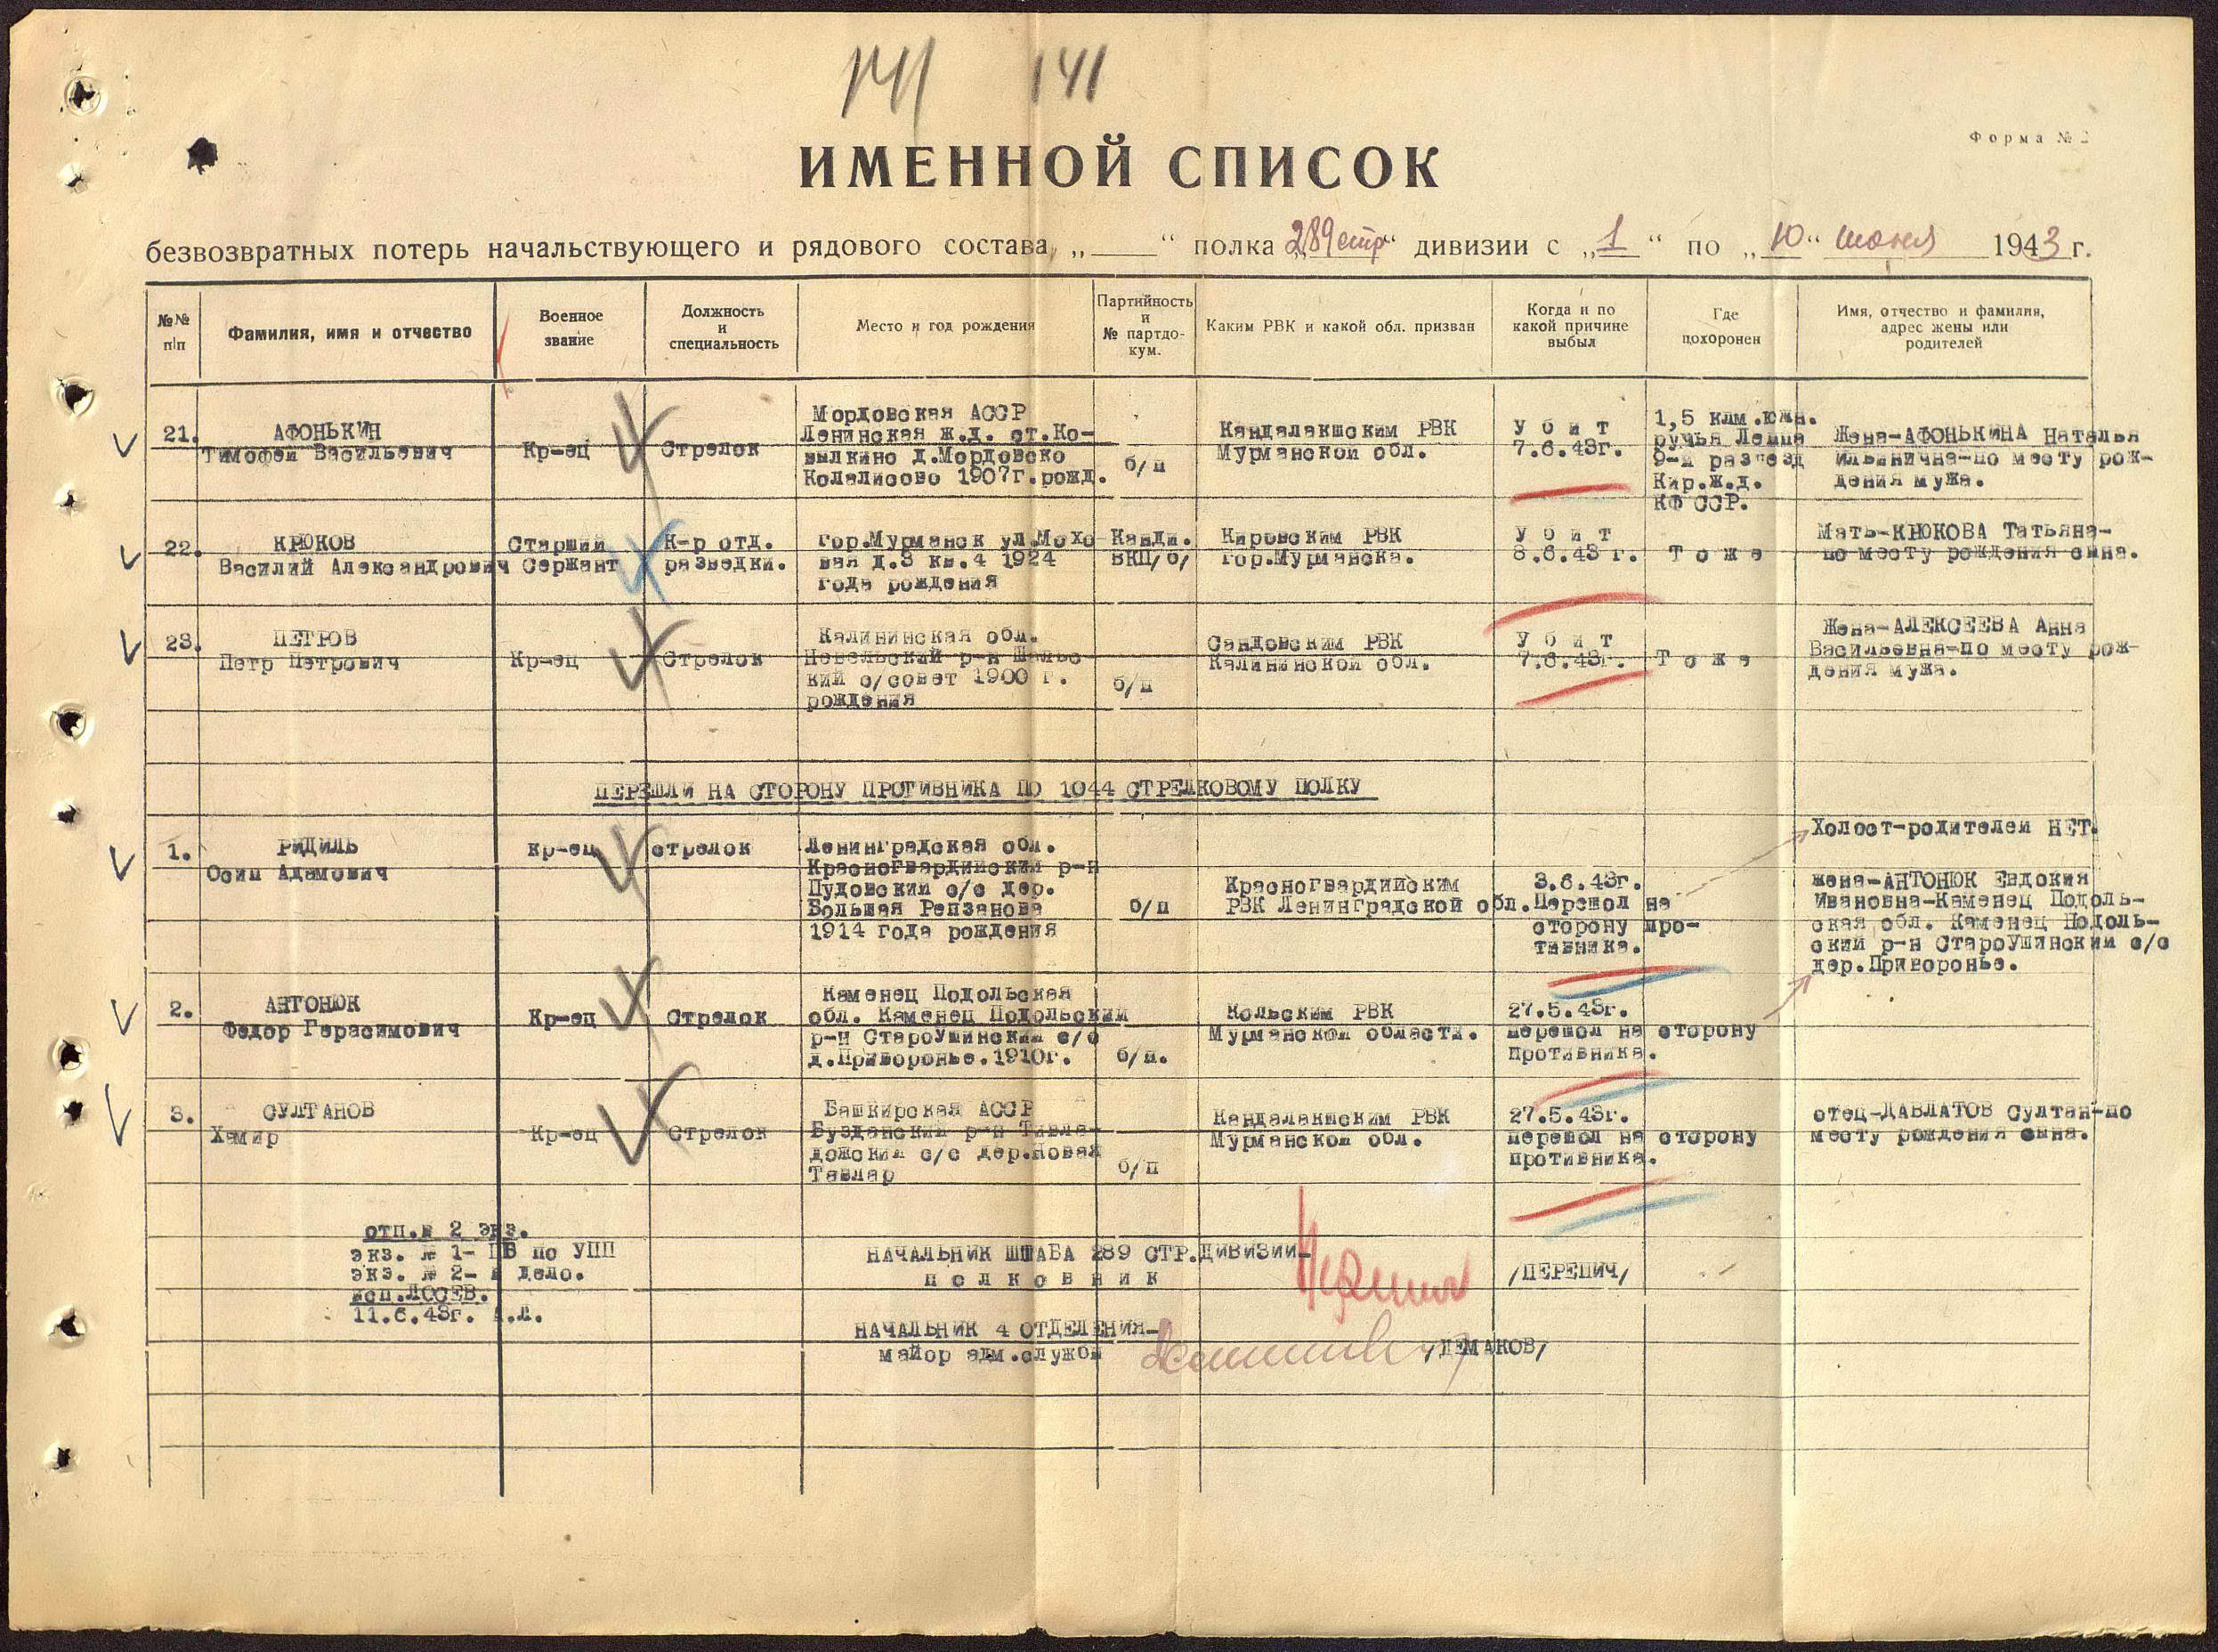 141 141
Форма № 2
ИМЕННОЙ СПИСОК
безвозвратных потерь начальствующего и рядового состава „ “ полка „289 стр“ дивизии с „1“ по „10“ июня 1943 г.
№№ п/п
Фамилия, имя и отчество
Военное звание
Должность и специальность
Место и год рождения
Партийность и № партдо-кум.
Каким РВК и какой обл. призван
Когда и по какой причине выбыл
Где похоронен
Имя, отчество и фамилия, адрес жены или родителей
21.
АФОНЬКИН
Тимофей Васильевич
Кр-ец
Стрелок
Мордовская АССР
Ленинская ж.д. ст.Ко-
вылкино д.Мордовско
Колалисово 1907г.рожд.
б/п
Кандалакшским РВК
Мурманской обл.
У б и т
7.6.43г.
1,5 клм.южн.
ручья Лемпа
9-й разъезд
Кир.ж.д.
КФ ССР.
Жена-АФОНЬКИНА Наталья
Ильинична-по месту рож-
дения мужа.
22.
КРЮКОВ
Василий Александрович
Старший
Сержант
К-р отд.
разведки.
гор.Мурманск ул.Мохо
вая д.3 кв.4 1924
года рождения
Канди.
ВКП/б/
Кировским РВК
гор.Мурманска.
У б и т
8.6.43 г.
Т о ж е
Мать-КРЮКОВА Татьяна-
по месту рождения сына.
23.
ПЕТРОВ
Петр Петрович
Кр-ец
Стрелок
Калининская обл.
Невельский р-н Шальс
кий с/совет 1900 г.
рождения
б/п
Сандовским РВК
Калининской обл.
У б и т
7.6.43г.
Т о ж е
Жена-АЛЕКСЕЕВА Анна
Васильевна-по месту рож-
дения мужа.
ПЕРЕШЛИ НА СТОРОНУ ПРОТИВНИКА ПО 1044 СТРЕЛКОВОМУ ПОЛКУ
1.
РИДИЛЬ
Осип Адамович
Кр-ец
стрелок
Ленинградская обл.
Красногвардийский р-н
Пудовский с/с дер.
Большая Репзанова
1914 года рождения
б/п
Красногвардийским
РВК Ленинградской обл.
3.6.43г.
Перешол на
сторону про-
тивника.
Холост-родителей НЕТ.
2.
АНТОНЮК
Федор Герасимович
Кр-ец
Стрелок
Каменец Подольская
обл. Каменец Подольский
р-н СтароУшинский с/с
д.Приворонье.1910г.
б/п.
Кольским РВК
Мурманской области.
27.5.43г.
перешол на сторону
противника.
жена-АНТОНЮК Евдокия
Ивановна-Каменец Подоль-
ская обл. Каменец Подоль-
ский р-н СтароУшинский с/с
дер.Приворонье.
3.
СУЛТАНОВ
Хамир
Кр-ец
Стрелок
Башкирская АССР
Бузданский р-н Тавла-
дожский с/с дер.Новая
Тавлар
б/п
Кандалакшским РВК
Мурманской обл.
27.5.43г.
перешол на сторону
противника.
отец-ДАВЛАТОВ Султан-по
месту рождения сына.
отп.в 2 экз.
экз. № 1- ЦБ по УПП
экз. № 2- в дело.
исп.ЛОСЕВ.
11.6.43г. А.Л.
НАЧАЛЬНИК ШТАБА 289 СТР.ДИВИЗИИ-
п о л к о в н и к
/ПЕРЕПИЧ/
НАЧАЛЬНИК 4 ОТДЕЛЕНИЯ-
майор адм.службы
/ДЕМАКОВ/